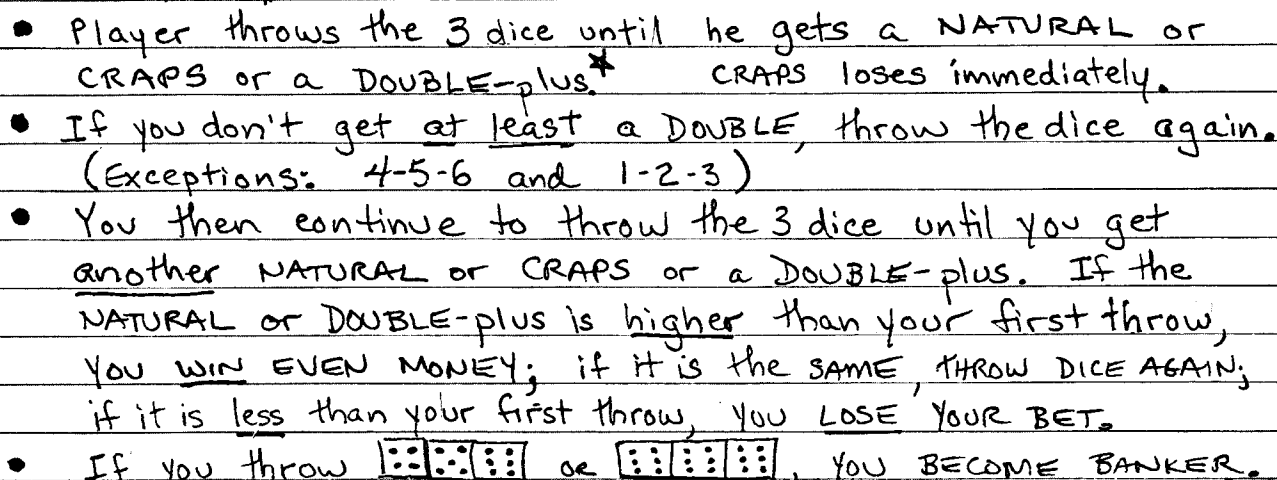 • Player throws the 3 dice until he gets a NATURAL or
CRAPS or a DOUBLE-plus.* CRAPS loses immediately.
• If you don't get at least a DOUBLE, throw the dice again.
(Exceptions: 4-5-6 and 1-2-3)
• You then continue to throw the 3 dice until you get
another NATURAL or CRAPS or a DOUBLE-plus. If the
NATURAL or DOUBLE-plus is higher than your first throw,
you WIN EVEN MONEY; if it is the SAME, THROW DICE AGAIN;
if it is less than your first throw, you LOSE YOUR BET.
• If you throw or , YOU BECOME BANKER.